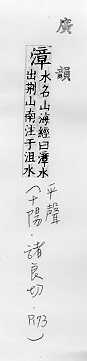 廣韻
漳水名山海經曰漳水
出荆山南注于沮水
平聲
(十陽·諸良切·P.73)